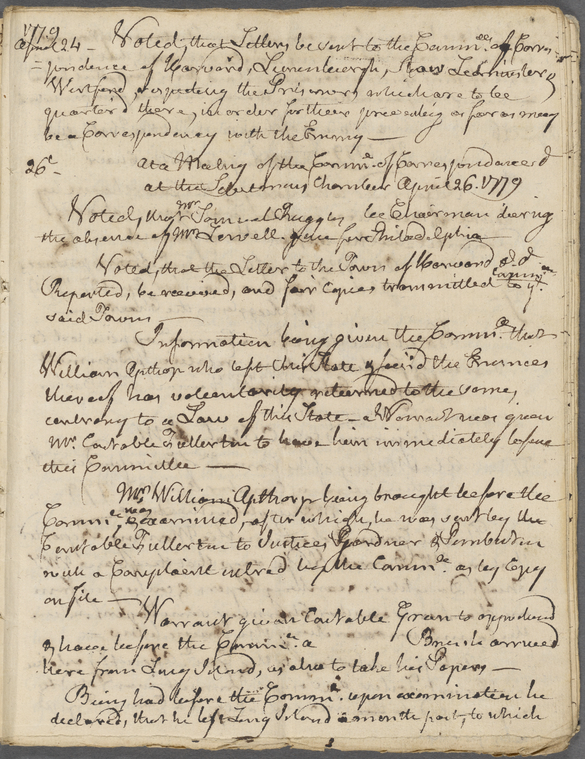 1779
April 24 — Voted, that Letters be sent to the Comm.ee of Corres
=pondence of Harvard, Lunenburgh, Leominster &
Westford, respecting the Prisoners which are to be
quarter'd there, in order for their preventing as far as may
be a Correspondency with the Enemy —
26th — At a Meeting of the Comm.ee of Correspondence &c
at the Selectmens Chamber April 26. 1779
Voted, that Mr Samuel Ruggles be Chairman during
the absence of Mr Lowell gone for Philadelphia
Voted, that the Letter to the Town of Harvard &c &c
Reported, be received, and fair Copies transmitted to ye Comm.ee
said Towns
Information being given the Comm.ee that
William Apthorp who left this State & join'd the Enemies
thereof has voluntarily returned to the same,
contrary to a Law of this State — a Warrant was given
Mr. Constable Fullerton to have him immediately before
this Committee —
Mr. William Apthorp being brought before the
Comm.ee was examined, after which, he was sent by the
Constable Fullerton to Justices Gardner & Pemberton
with a Complaint entred by the Comm.ee as by Copy
on file —
Warrant given Constable Green to apprehend
& have before the Comm.ee a British arrived
here from Long Island, as also to take his Papers —
Being had before the Comm.ee upon examination he
declared, that he left Long Island a month past, to which